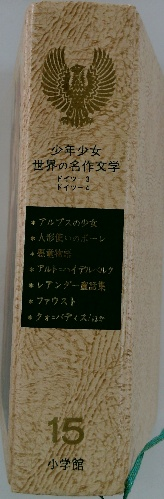 少年少女
世界の名作文学
ドイツ-3
ドイツ-4
*アルプスの少女
*人形使いのポーレ
*悪竜物語
*アルト=ハイデルベルク
*レアンダー童話集
*ファウスト
*クォ=バディス/ほか
15
小学館